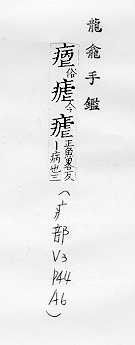 龍龕手鑑
俗瘧今瘧正魚畧反｜病也三(疒部V3P44A6)